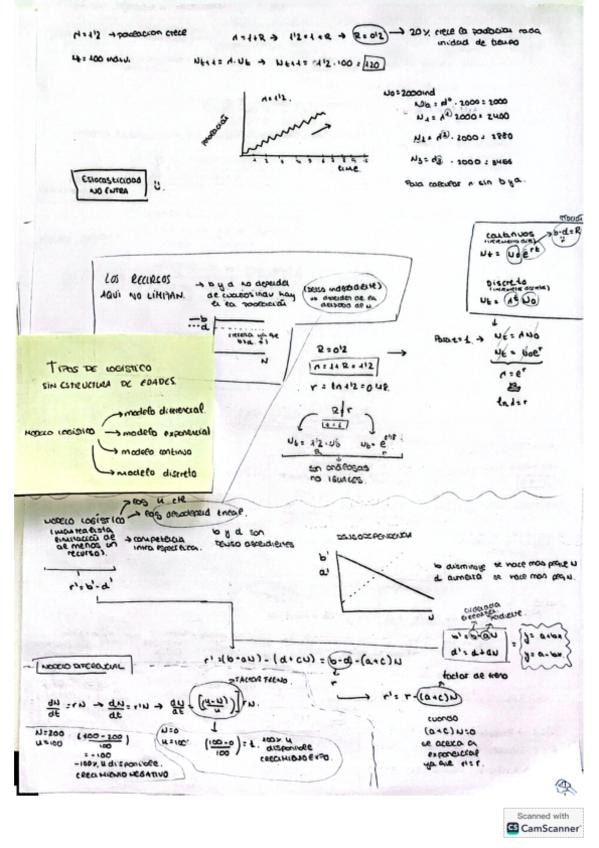 λ=1'2 → población crece
λ=1+R → 1'2=1+R → R=0'2 → 20% crece la población cada unidad de tiempo
Nt=100 indiv.
Nt+1=λ·Nt → Nt+1=1'2·100=120
λ=1'2.
time
1 2 3 4 5 6 7 8 9
N0=2000ind
2000=2000
N1=λ¹ 2000=2400
N2=λ² · 2000=2880
N3=λ³ · 2000=3456
Para calcular λ sin b y d.
ESTOCASTICIDAD
NO ENTRA
continuos
b-d=R
Nt=N0e^rt
Discreto
Nt=λ^t N0
LOS RECURSOS
AQUÍ NO LIMITAN.
→ b y d no dependen de cuantos indiv hay en la población
(denso independiente)
b
d
N
R=0'2
λ=1+R=1'2
r=ln 1'2=0'18
→ Para t=1. → Nt=λN0
Nt=N0e^r
λ=e^r
lnλ=r
R≠r
son análogas
no iguales.
TIPOS DE LOGÍSTICO
SIN ESTRUCTURA DE EDADES.
MODELO LOGÍSTICO
→ modelo diferencial
→ modelo exponencial
→ modelo continuo
→ modelo discreto
MODELO LOGÍSTICO
(más realista
limitación de
al menos un
recurso).
→ competencia
intra específica.
b y d son
denso dependientes
r'=b'-d'
DENSODEPENDENCIA
b'
d'
N
b disminuye se hace más peque N
d aumenta se hace más peq N.
b'=b-aN
d'=d+cN
y=a+bx
y=a-bx
MODELO DIFERENCIAL
r'=(b-aN)-(d+cN)=(b-d)-(a+c)N
r
→ r'=r-(a+c)N
factor de freno
FACTOR FRENO
dN/dt=rN → dN/dt=r'N → dN/dt=[(K-N)/K]rN.
N=200
K=100
(100-200/100)
=-100
-100% K disponible.
CRECIMIENTO NEGATIVO
N=0
K=100
(100-0/100)=1.
100% K
disponible
CRECIMIENTO EXPO.
cuando
(a+c)N=0
se acerca a
exponencial
ya que r'=r.
Scanned with
CS CamScanner